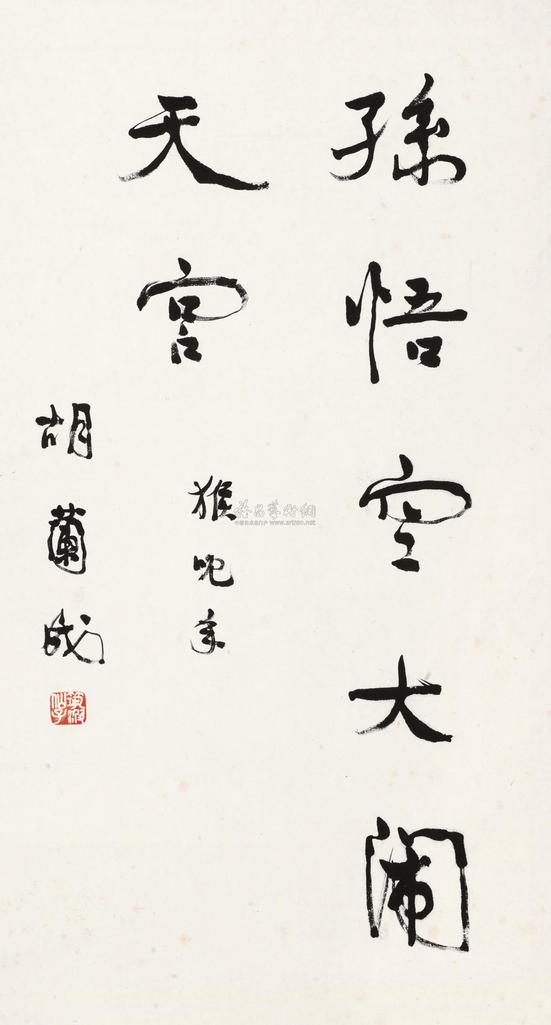 孫悟空大闹
天宫
猴 年
胡蘭成
雅昌藝術網
www.artron.net